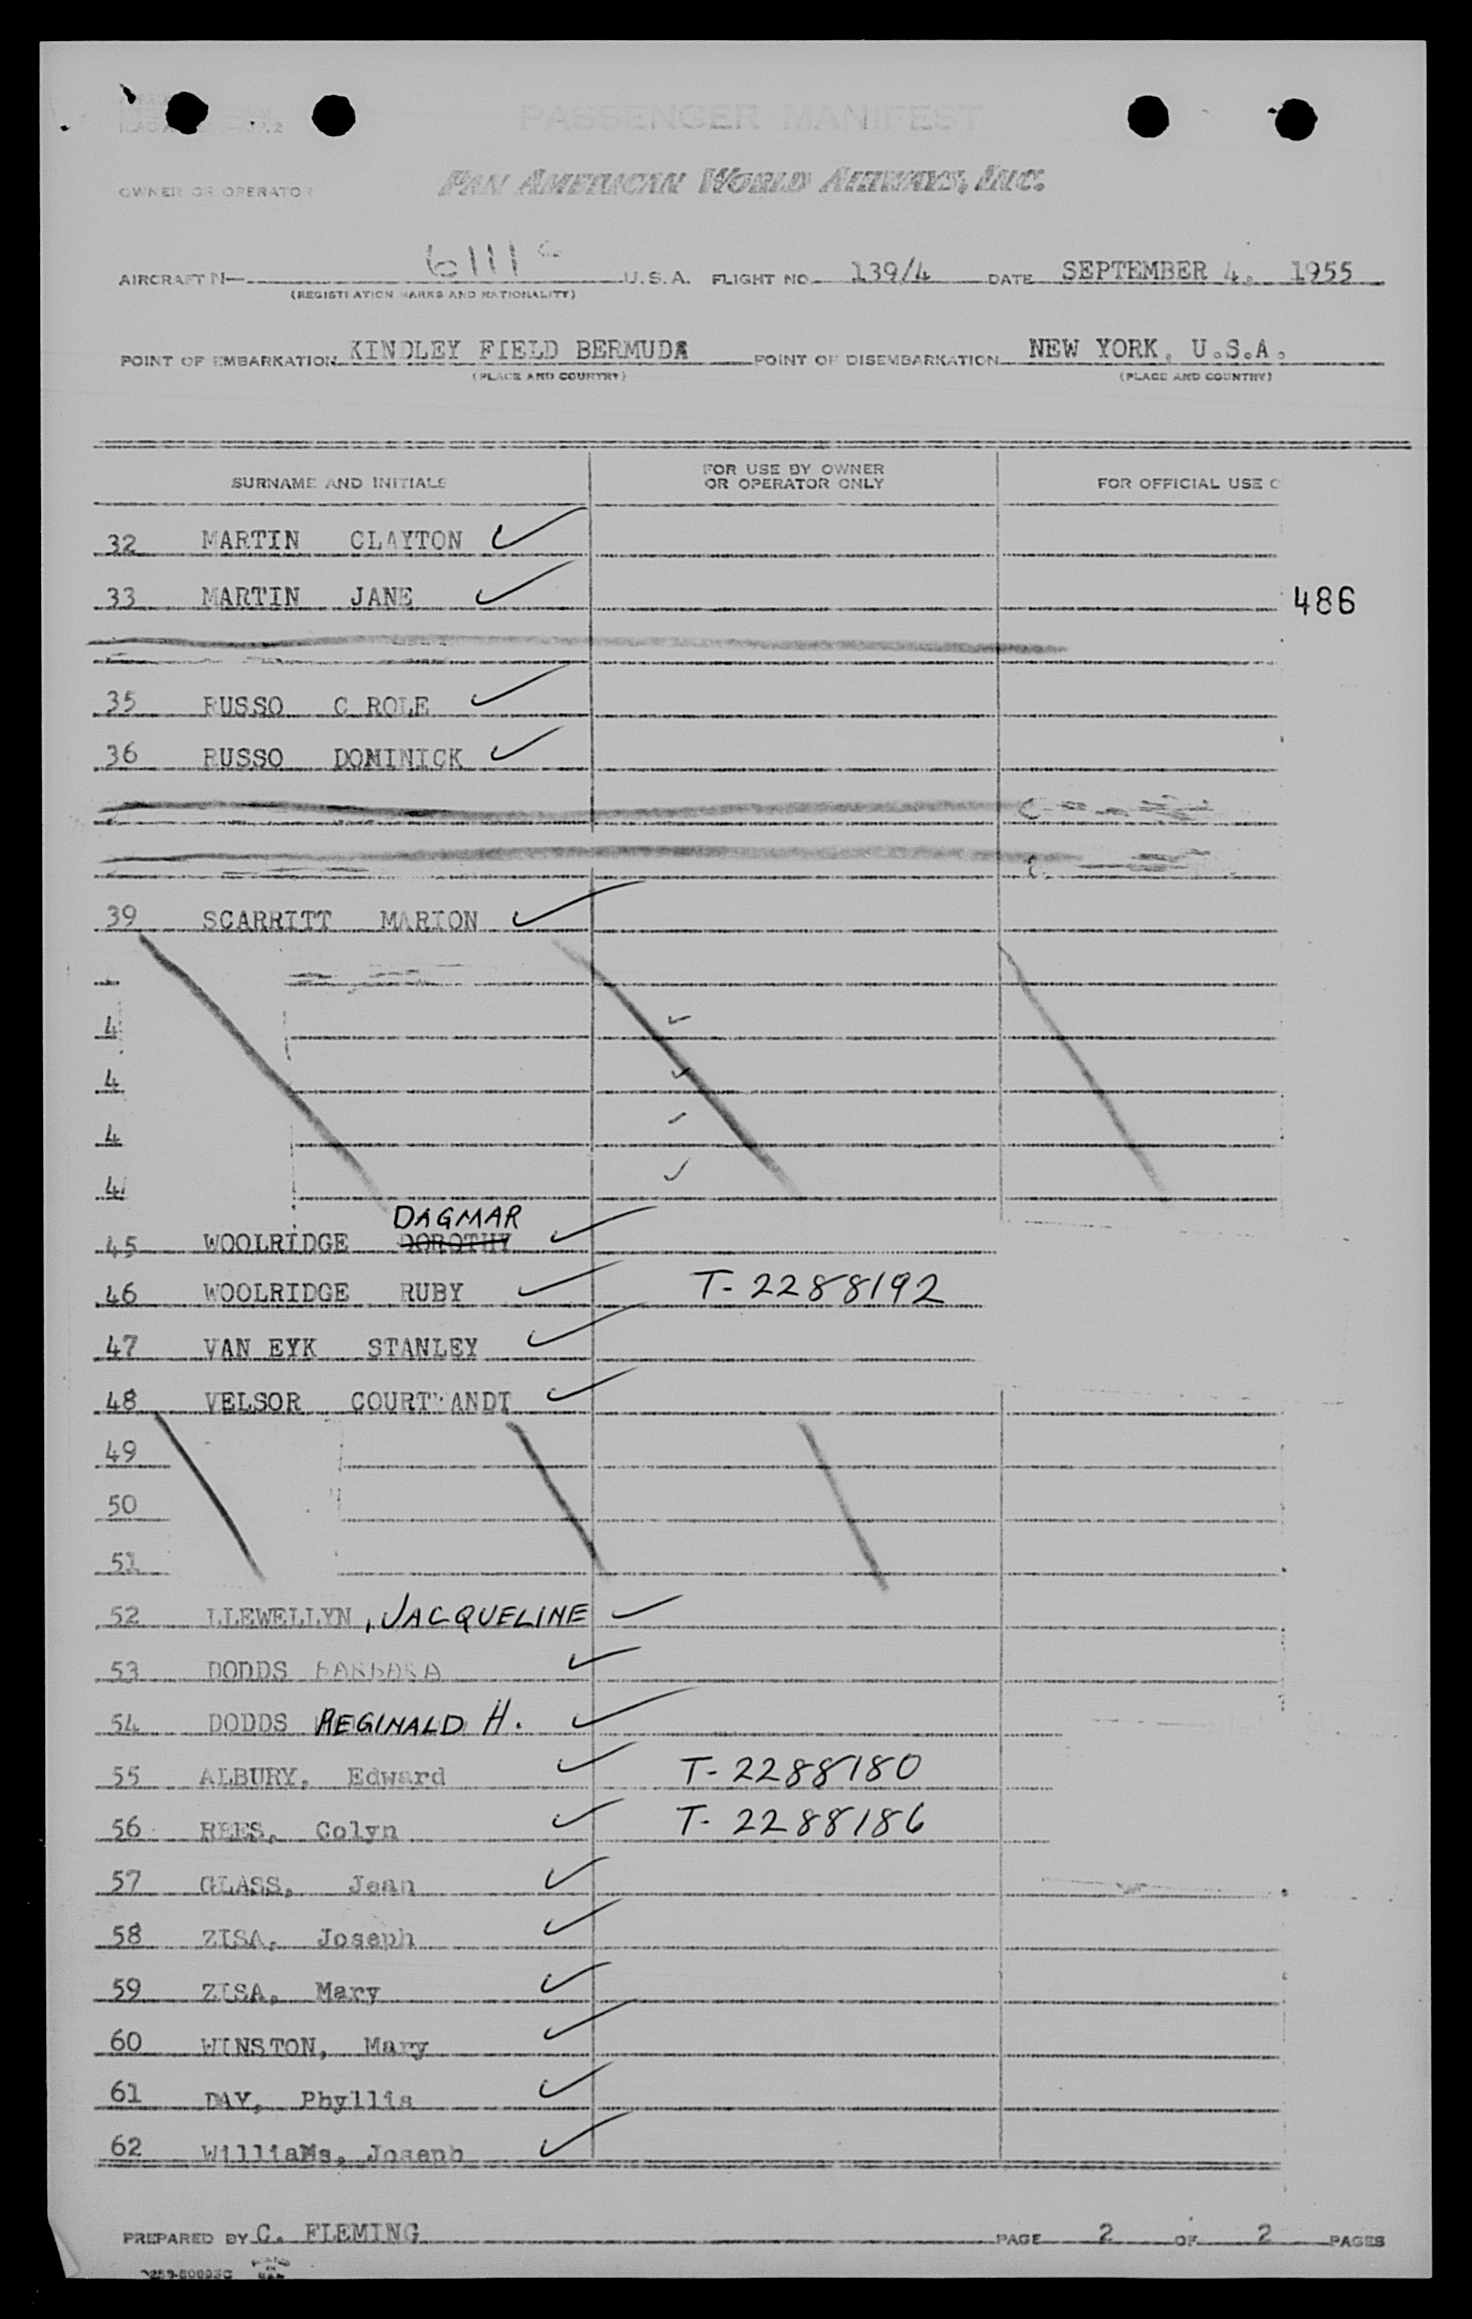 PASSENGER MANIFEST
OWNER OR OPERATOR PAN AMERICAN WORLD AIRWAYS, INC.
AIRCRAFT N— 6111C U.S.A. FLIGHT NO. 139/4 DATE SEPTEMBER 4, 1955
(REGISTRATION MARKS AND NATIONALITY)
POINT OF EMBARKATION KINDLEY FIELD BERMUDA POINT OF DISEMBARKATION NEW YORK, U.S.A.
(PLACE AND COUNTRY) (PLACE AND COUNTRY)
SURNAME AND INITIALS FOR USE BY OWNER OR OPERATOR ONLY FOR OFFICIAL USE O
32 MARTIN CLAYTON ✓
33 MARTIN JANE ✓ 486
35 RUSSO C ROLE ✓
36 RUSSO DOMINICK ✓
39 SCARRITT MARION ✓
4 ✓
4 ✓
4 ✓
4 ✓
DAGMAR
45 WOOLRIDGE DOROTHY ✓
46 WOOLRIDGE RUBY ✓ T-2288192
47 VAN EYK STANLEY ✓
48 VELSOR COURT ANDT ✓
49
50
51
52 LLEWELLYN, JACQUELINE ✓
53 DODDS BARBARA ✓
54 DODDS REGINALD H. ✓
55 ALBURY, Edward ✓ T-2288180
56 REES, Colyn ✓ T-2288186
57 GLASS, Jean ✓
58 ZISA, Joseph ✓
59 ZISA, Mary ✓
60 WINSTON, Mary ✓
61 DAY, Phyllis ✓
62 WilliaMs, Joseph ✓
PREPARED BY C. FLEMING PAGE 2 OF 2 PAGES